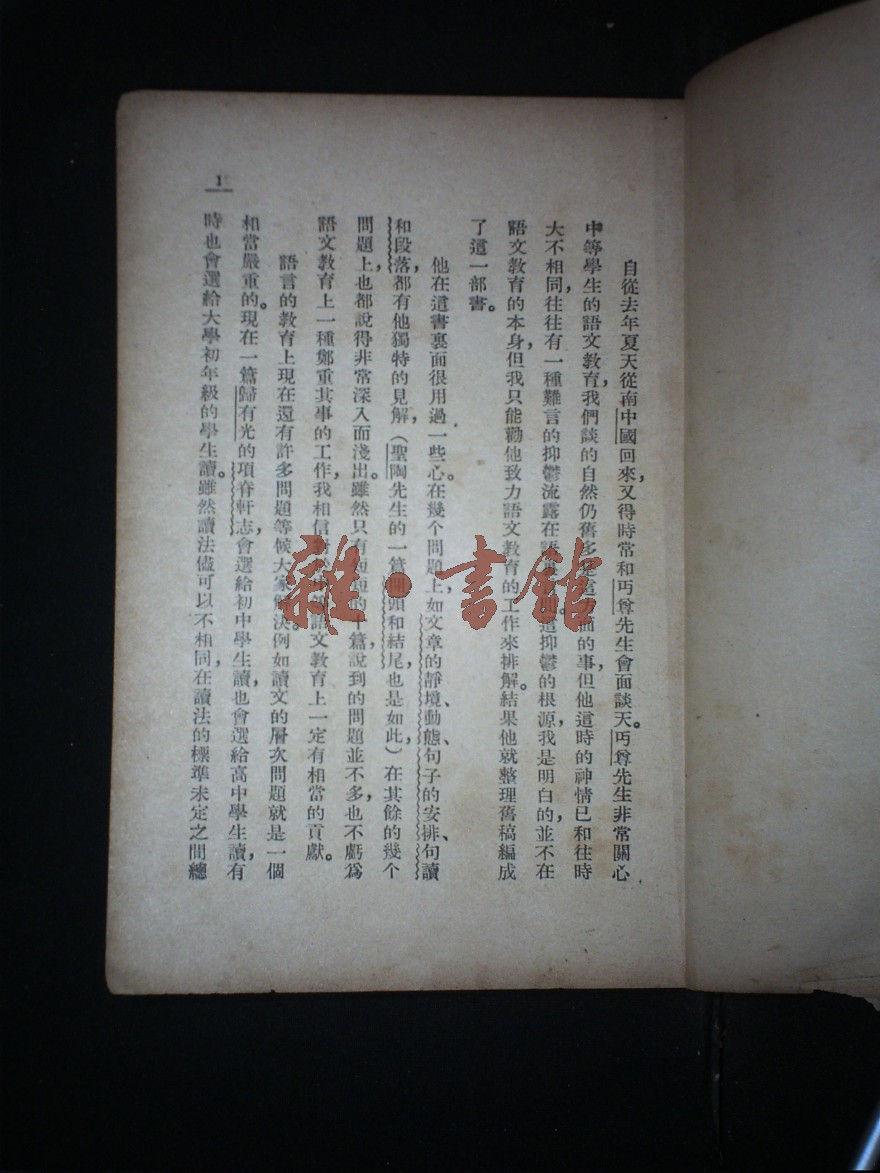 自從去年夏天從南中國回來，又得時常和丏尊先生會面談天。丏尊先生非常關心
中等學生的語文教育，我們談的自然仍舊多是這方面的事，但他這時的神情已和往時
大不相同，往往有一種難言的抑鬱流露在語裏面。這抑鬱的根源，我是明白的，並不在
語文教育的本身，但我只能勸他致力語文教育的工作來排解。結果他就整理舊稿編成
了這一部書。
他在這書裏面很用過一些心。在幾個問題上，如文章的靜境、動態、句子的安排、句讀
和段落，都有他獨特的見解，（聖陶先生的一篇開頭和結尾也是如此，）在其餘的幾个
問題上也都說得非常深入而淺出。雖然只有短短的十篇，說到的問題並不多，也不虧爲
語文教育上一種鄭重其事的工作，我相信語文教育上一定有相當的貢獻。
語言的教育上現在還有許多問題等候大家解決。例如讀文的層次問題就是一個
相當嚴重的。現在一篇歸有光的項脊軒志，會選給初中學生讀，也會選給高中學生讀，有
時也會選給大學初年級的學生讀。雖然讀法儘可以不相同，在讀法的標準未定之間總
1
雜·書館